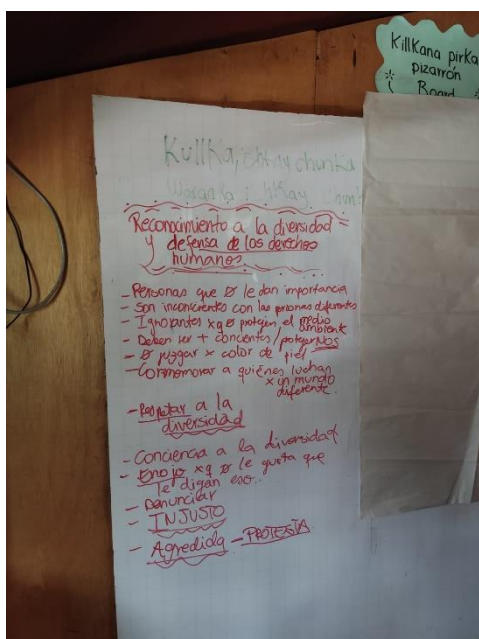 Killkana pirka
pizarrón
Board
Kullka, ishkay chunka
Waranka ishkay chunk
Reconocimiento a la diversidad
y defensa de los derechos
humanos.
- Personas que Ø le dan importancia
- Son inconcientes con las personas diferentes
- Ignorantes xq Ø protejen el medio
ambiente
- Deben ser + concientes/protejerNOS
- Ø juzgar x color de piel
- Conmemorar a quiénes luchan
x un mundo
diferente.
- Respetar a la
diversidad
- Conciencia a la diversidad
- Enojo xq Ø le gusta que
le digan eso..
- Denunciar
- INJUSTO
- Agredida - PROTESTA